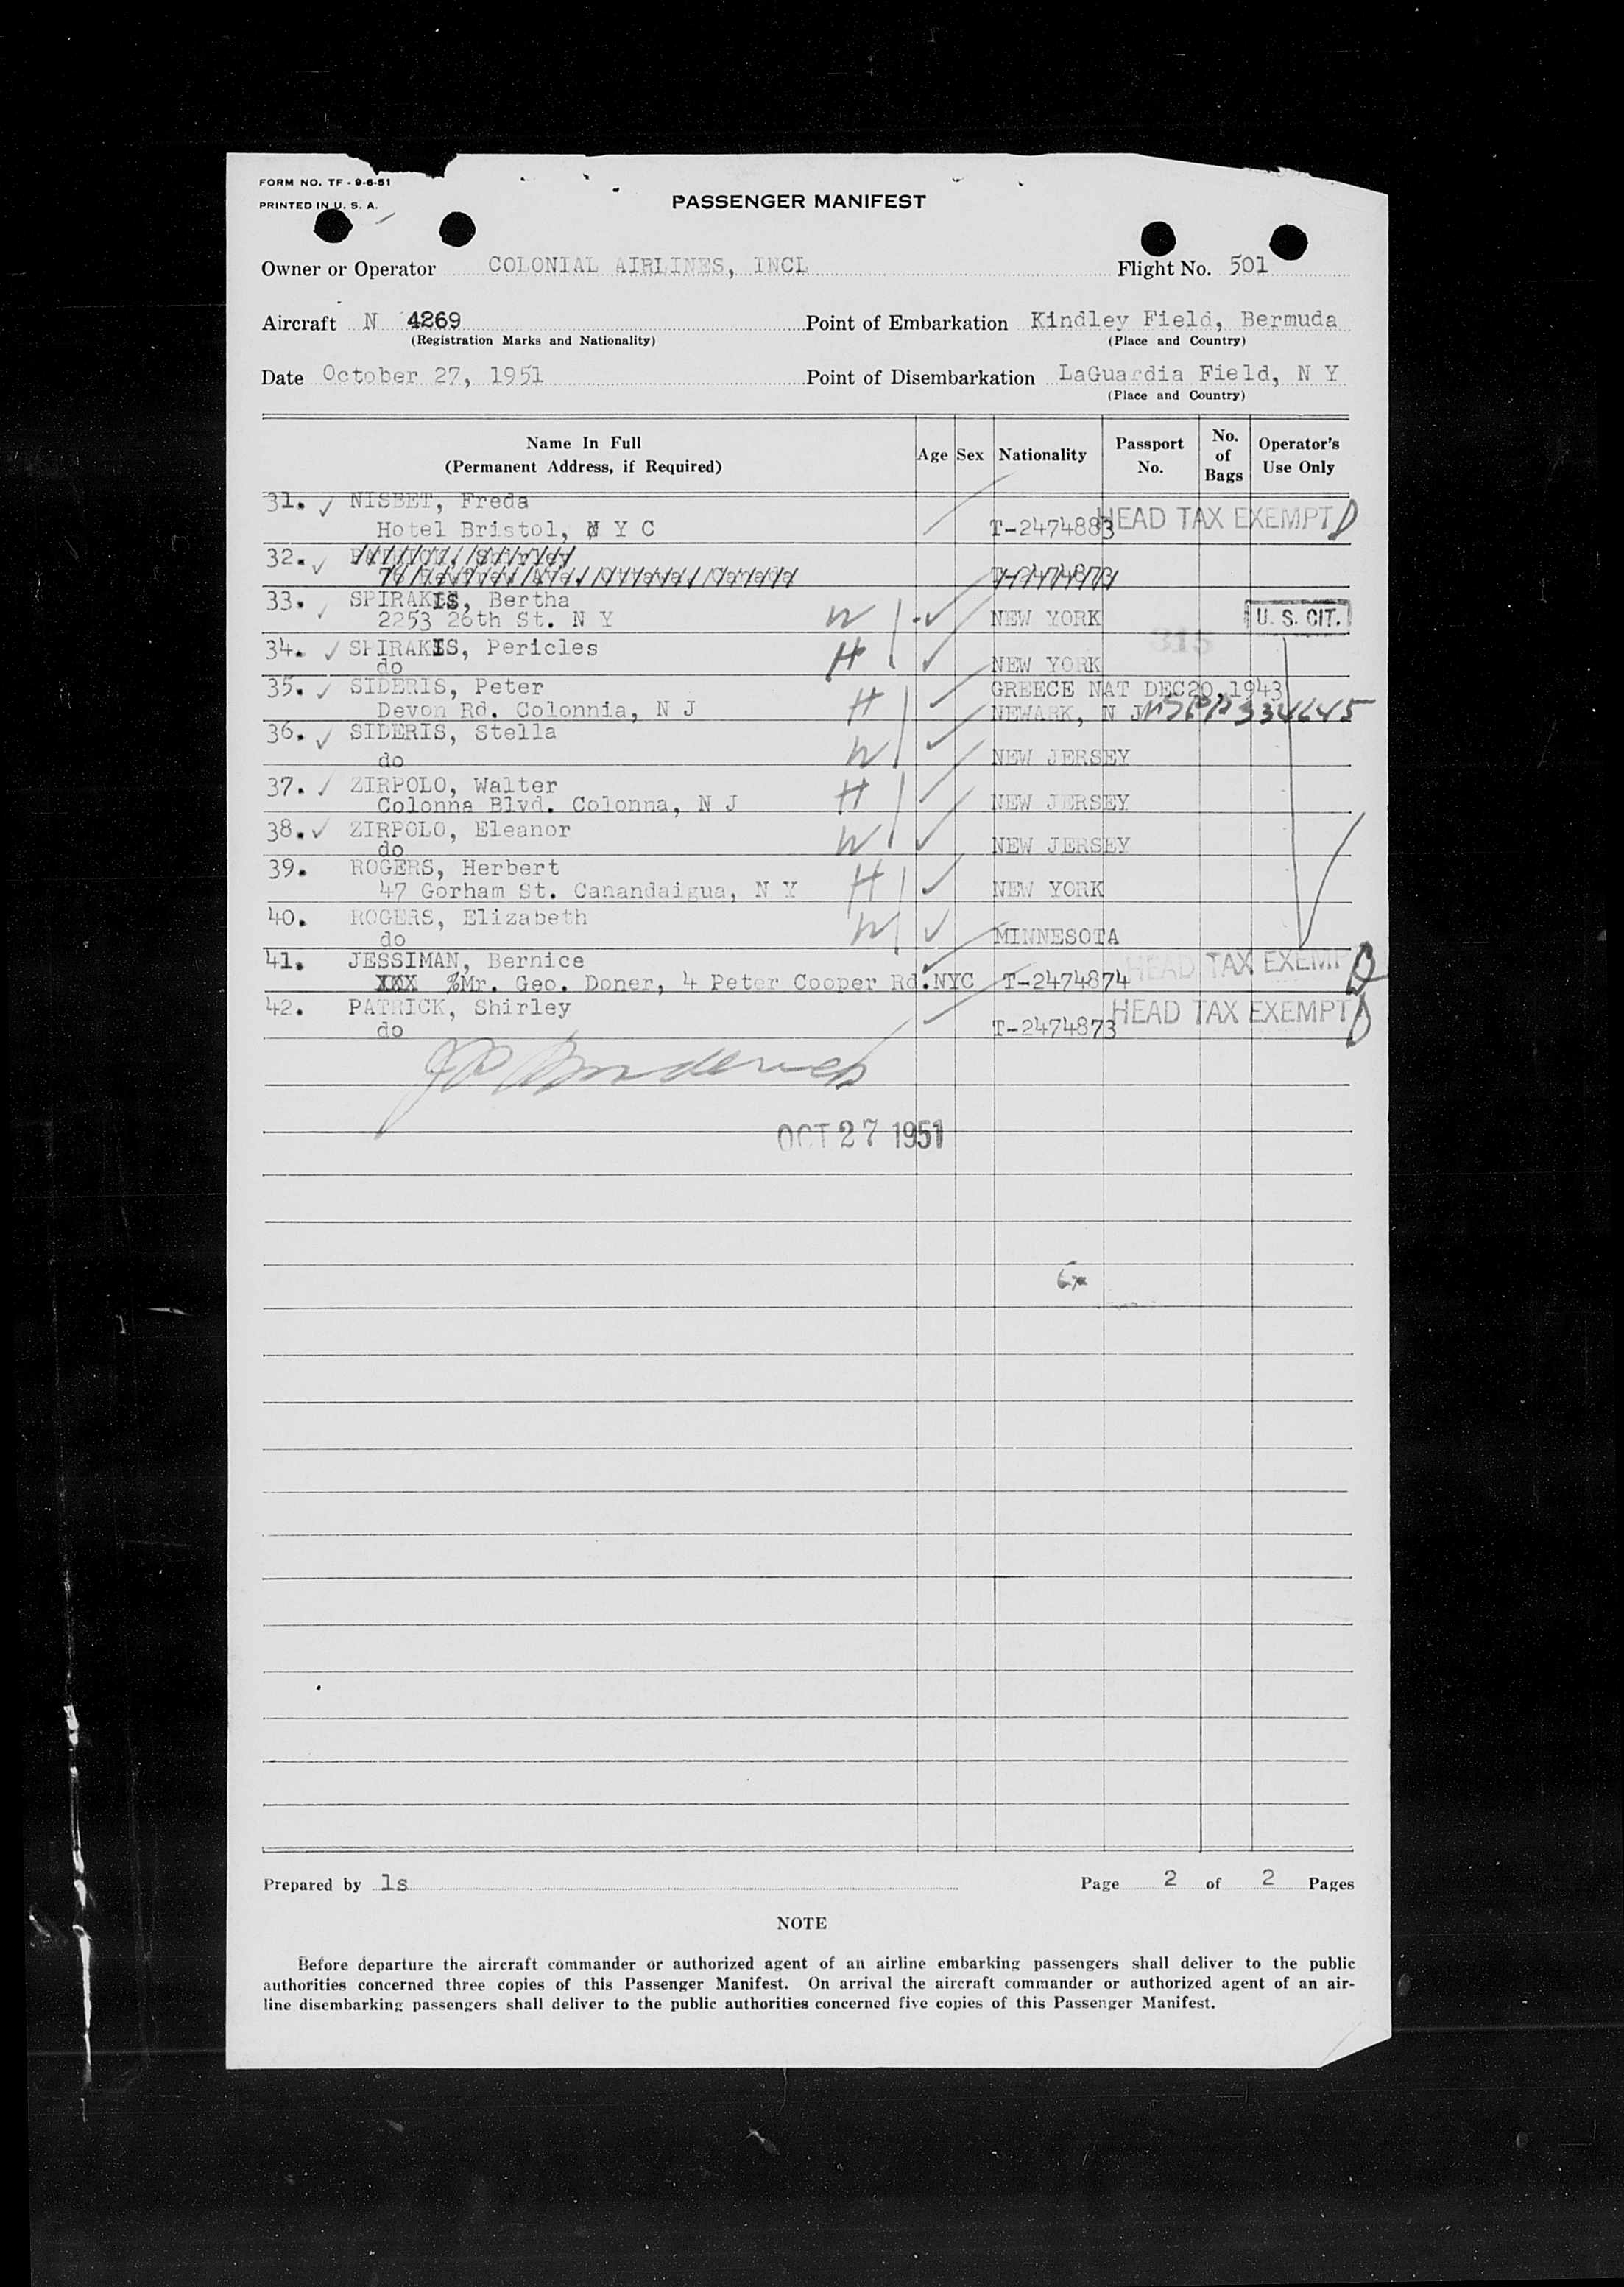 FORM NO. TF - 9-6-51
PRINTED IN U. S. A.
PASSENGER MANIFEST
Owner or Operator COLONIAL AIRLINES, INCL Flight No. 501
Aircraft N 4269 Point of Embarkation Kindley Field, Bermuda
(Registration Marks and Nationality) (Place and Country)
Date October 27, 1951 Point of Disembarkation LaGuardia Field, N Y
(Place and Country)
Name In Full (Permanent Address, if Required) Age Sex Nationality Passport No. No. of Bags Operator's Use Only
31. NISBET, Freda
Hotel Bristol, N Y C T-2474883 HEAD TAX EXEMPT D
32.
33. SPIRAKIS, Bertha
2253 26th St. N Y W NEW YORK U. S. CIT.
34. SPIRAKIS, Pericles 315
do H NEW YORK
35. SIDERIS, Peter GREECE NAT DEC20, 1943
Devon Rd. Colonnia, N J H NEWARK, N J USPP 334645
36. SIDERIS, Stella
do W NEW JERSEY
37. ZIRPOLO, Walter
Colonna Blvd. Colonna, N J H NEW JERSEY
38. ZIRPOLO, Eleanor
do W NEW JERSEY
39. ROGERS, Herbert
47 Gorham St. Canandaigua, N Y H NEW YORK
40. ROGERS, Elizabeth
do W MINNESOTA
41. JESSIMAN, Bernice HEAD TAX EXEMP
XXX %Mr. Geo. Doner, 4 Peter Cooper Rd.NYC T-2474874
42. PATRICK, Shirley HEAD TAX EXEMPT D
do T-2474873
OCT 27 1951
Prepared by ls Page 2 of 2 Pages
NOTE
Before departure the aircraft commander or authorized agent of an airline embarking passengers shall deliver to the public
authorities concerned three copies of this Passenger Manifest. On arrival the aircraft commander or authorized agent of an air-
line disembarking passengers shall deliver to the public authorities concerned five copies of this Passenger Manifest.